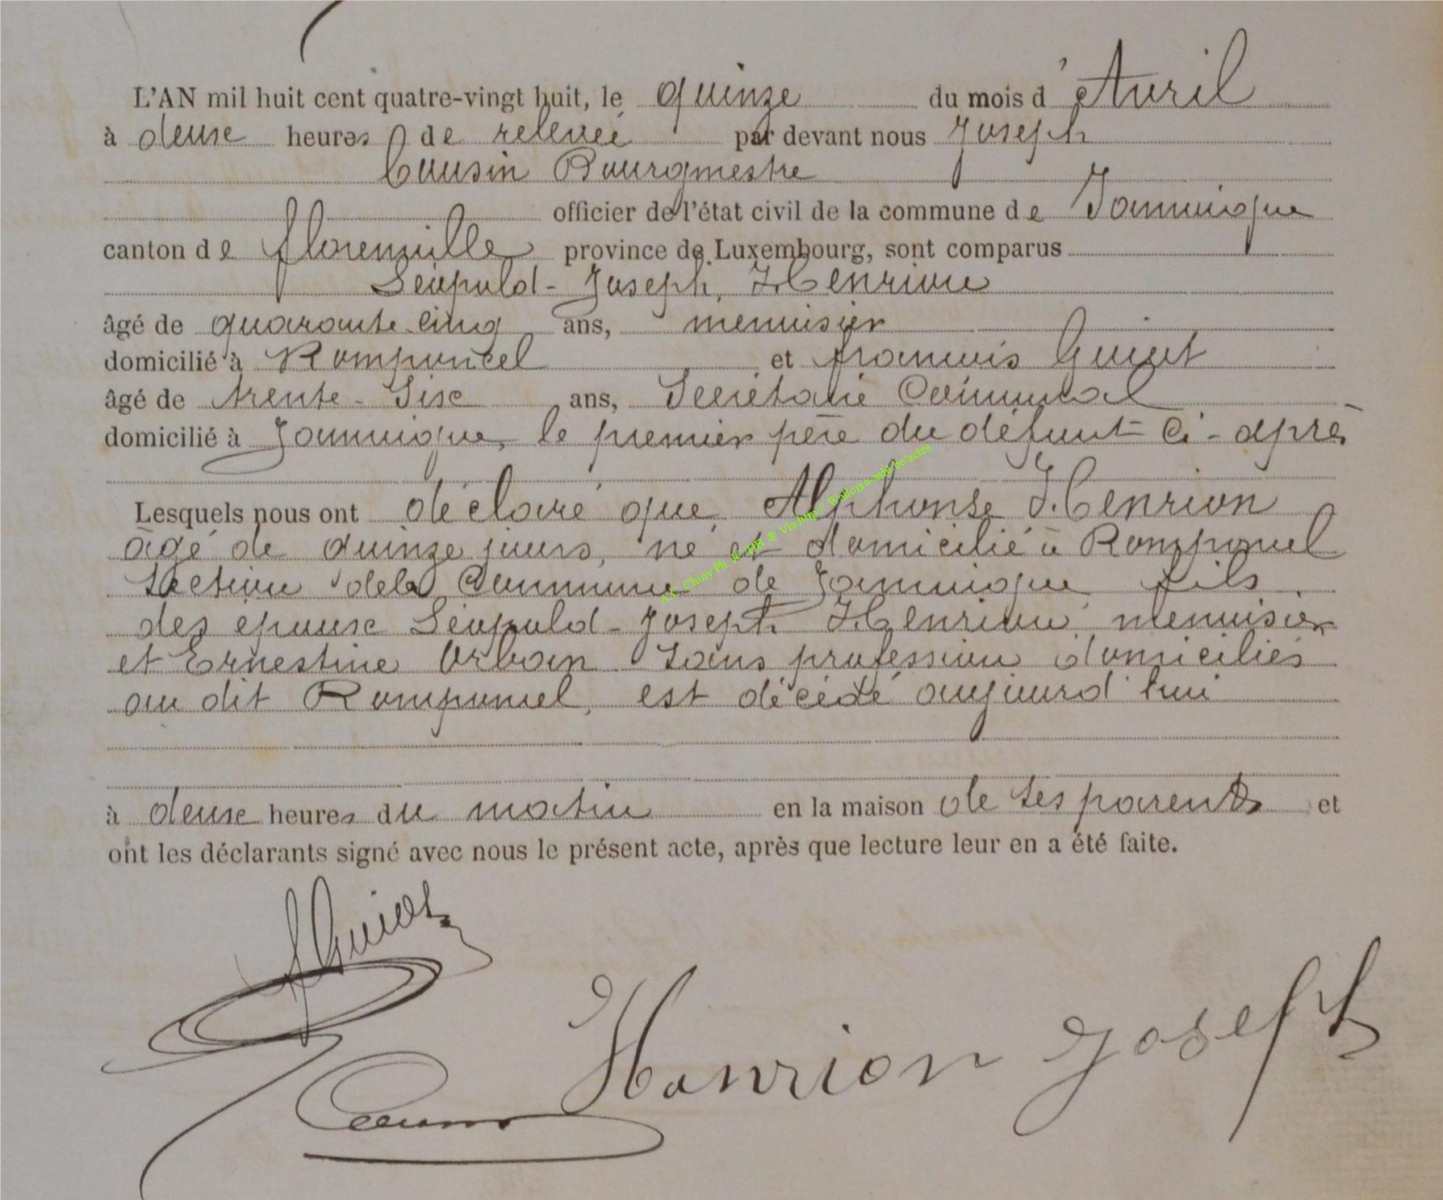 L'AN mil huit cent quatre-vingt huit, le quinze du mois d'Avril
à deuse heures de relevée par devant nous Joseph
Cousin Bourgmestre
officier de l'état civil de la commune de Jamoigne
canton de florenville province de Luxembourg, sont comparus
Léopold-Joseph Henrion
âgé de quarante cinq ans, menuisier
domicilié à Romponcel et françois Guiot
âgé de trente-Sise ans, Secrétaire Communal
domicilié à Jamoigne, le premier père du défunt ci-après
Lesquels nous ont déclaré que Alphonse Henrion
âgé de quinze jours, né et domicilié à Romponcel
section de la Commune de Jamoigne fils
des epouse Léopold-Joseph Henrion, menuisier
et Ernestine Urbain sans profession domiciliés
au dit Romponcel, est décédé aujourd'hui
à deuse heures du matin en la maison de ses parents et
ont les déclarants signé avec nous le présent acte, après que lecture leur en a été faite.
fGuiot
Henrion Joseph
Cousin